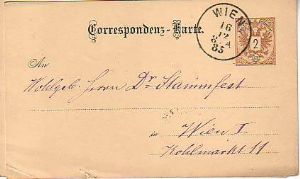 Correspondenz-Karte.
WIEN
16
12
85
2
An
Wohlgeb. Herrn Dr Stammfest
in
Wien I
Kohlmarkt 11